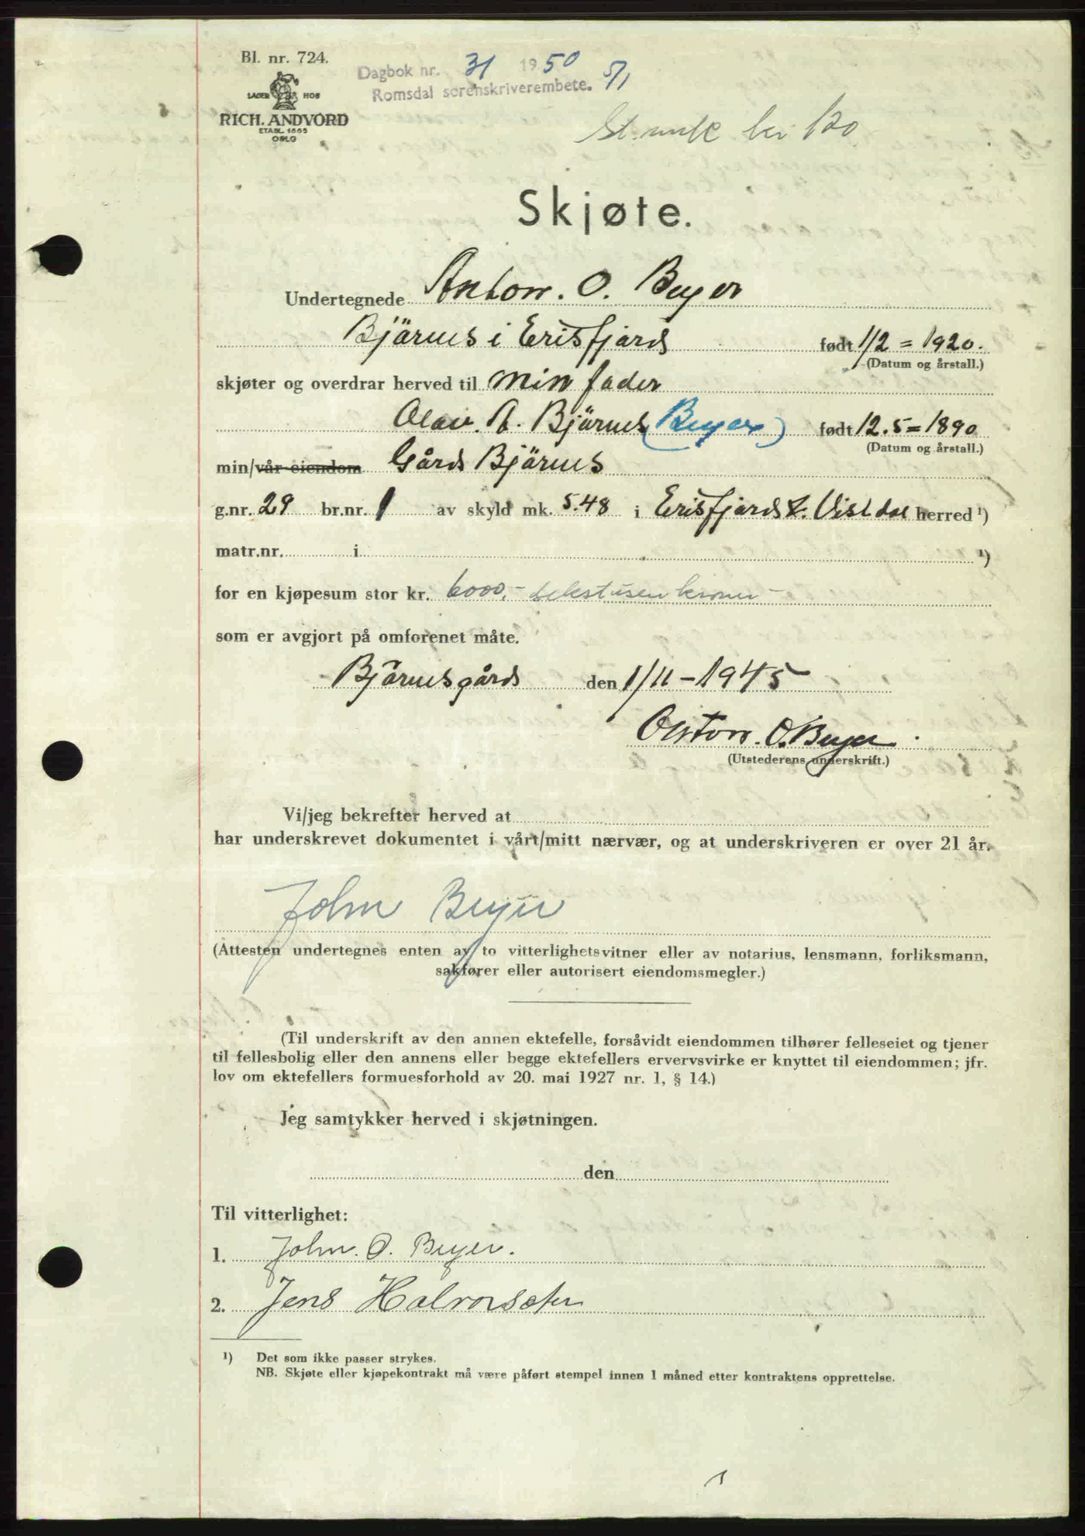 Bl. nr. 724.
LAGER HOS
RICH. ANDVORD
ETABL. 1865
OSLO
Dagbok nr. 31 1950 5/1
Romsdal sorenskriverembete.
St.mrk kr 120
Skjøte.
Undertegnede Anton. O. Beyer
Bjärmes i Erisfjord født 1/2 = 1920.
(Datum og årstall.)
skjøter og overdrar herved til min fader
Olav. A. Bjärmes (Beyer) født 12.5=1890
(Datum og årstall.)
min/vår eiendom Gård Bjärmes
g.nr. 29 br.nr. 1 av skyld mk. 5.48 i Erisfjord & Vistdal herred ¹)
matr.nr. i ¹)
for en kjøpesum stor kr. 6000,- sekstusen kroner -
som er avgjort på omforenet måte.
Bjärmesgård den 1/11 - 1945
Anton. O. Beyer.
(Utstederens underskrift.)
Vi/jeg bekrefter herved at
har underskrevet dokumentet i vårt/mitt nærvær, og at underskriveren er over 21 år.
John Beyer
(Attesten undertegnes enten av to vitterlighetsvitner eller av notarius, lensmann, forliksmann,
sakfører eller autorisert eiendomsmegler.)
(Til underskrift av den annen ektefelle, forsåvidt eiendommen tilhører felleseiet og tjener
til fellesbolig eller den annens eller begge ektefellers ervervsvirke er knyttet til eiendommen; jfr.
lov om ektefellers formuesforhold av 20. mai 1927 nr. 1, § 14.)
Jeg samtykker herved i skjøtningen.
den
Til vitterlighet:
1. John. O. Beyer.
2. Jens Halvorsæter
¹) Det som ikke passer strykes.
NB. Skjøte eller kjøpekontrakt må være påført stempel innen 1 måned etter kontraktens opprettelse.